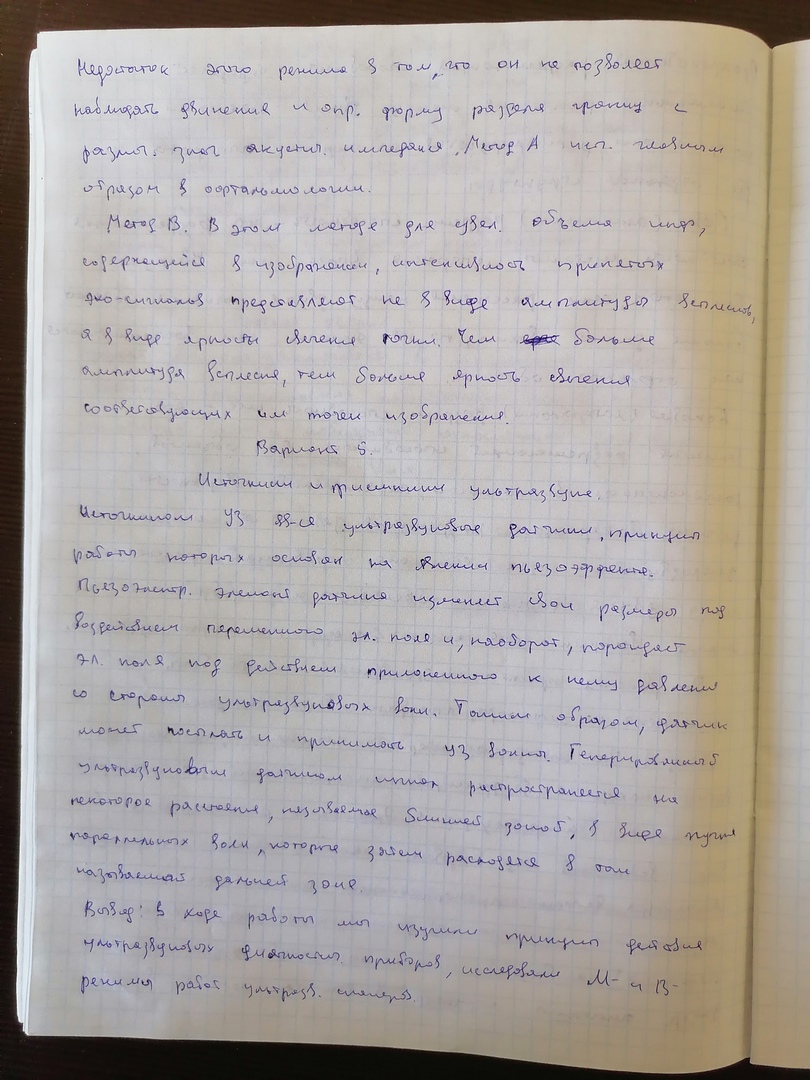 Недостаток этого режима в том, что он не позволяет
наблюдать движения и опр. форму раздела границ с
различ. знач акустич. импеданса. Метод А исп. главным
образом в офтальмологии.
Метод В. В этом методе для увел. объема инф,
содержащейся в изображении, интенсивность принятых
эхо-сигналов представляют не в виде амплитуды всплесков,
а в виде яркости свечения точки. Чем больше
амплитуда всплеска, тем больше яркость свечения
соответсвующих им точек изображения.
Вариант 5.
Источники и приемники ультразвука.
Источником УЗ яв-ся ультразвуковые датчики, принцип
работы которых основан на явлении пьезоэффекта.
Пьезоэлектр. элемент датчика изменяет свои размеры под
воздействием переменного эл. поля и, наоборот, порождает
эл. поля под действием приложенного к нему давления
со стороны ультразвуковых волн. Таким образом, датчик
может посылать и принимать УЗ волны. Генерированный
ультразвуковым датчиком распространяется на
некоторое расстояние, называемое ближней зоной, в виде пучка
параллельных волн, которые затем расходятся в так
называемой дальней зоне.
Вывод: в ходе работы мы изучили принципы действия
ультразвуковых диагностич. приборов, исследовали М- и В-
режимы работ ультразв. сканеров.